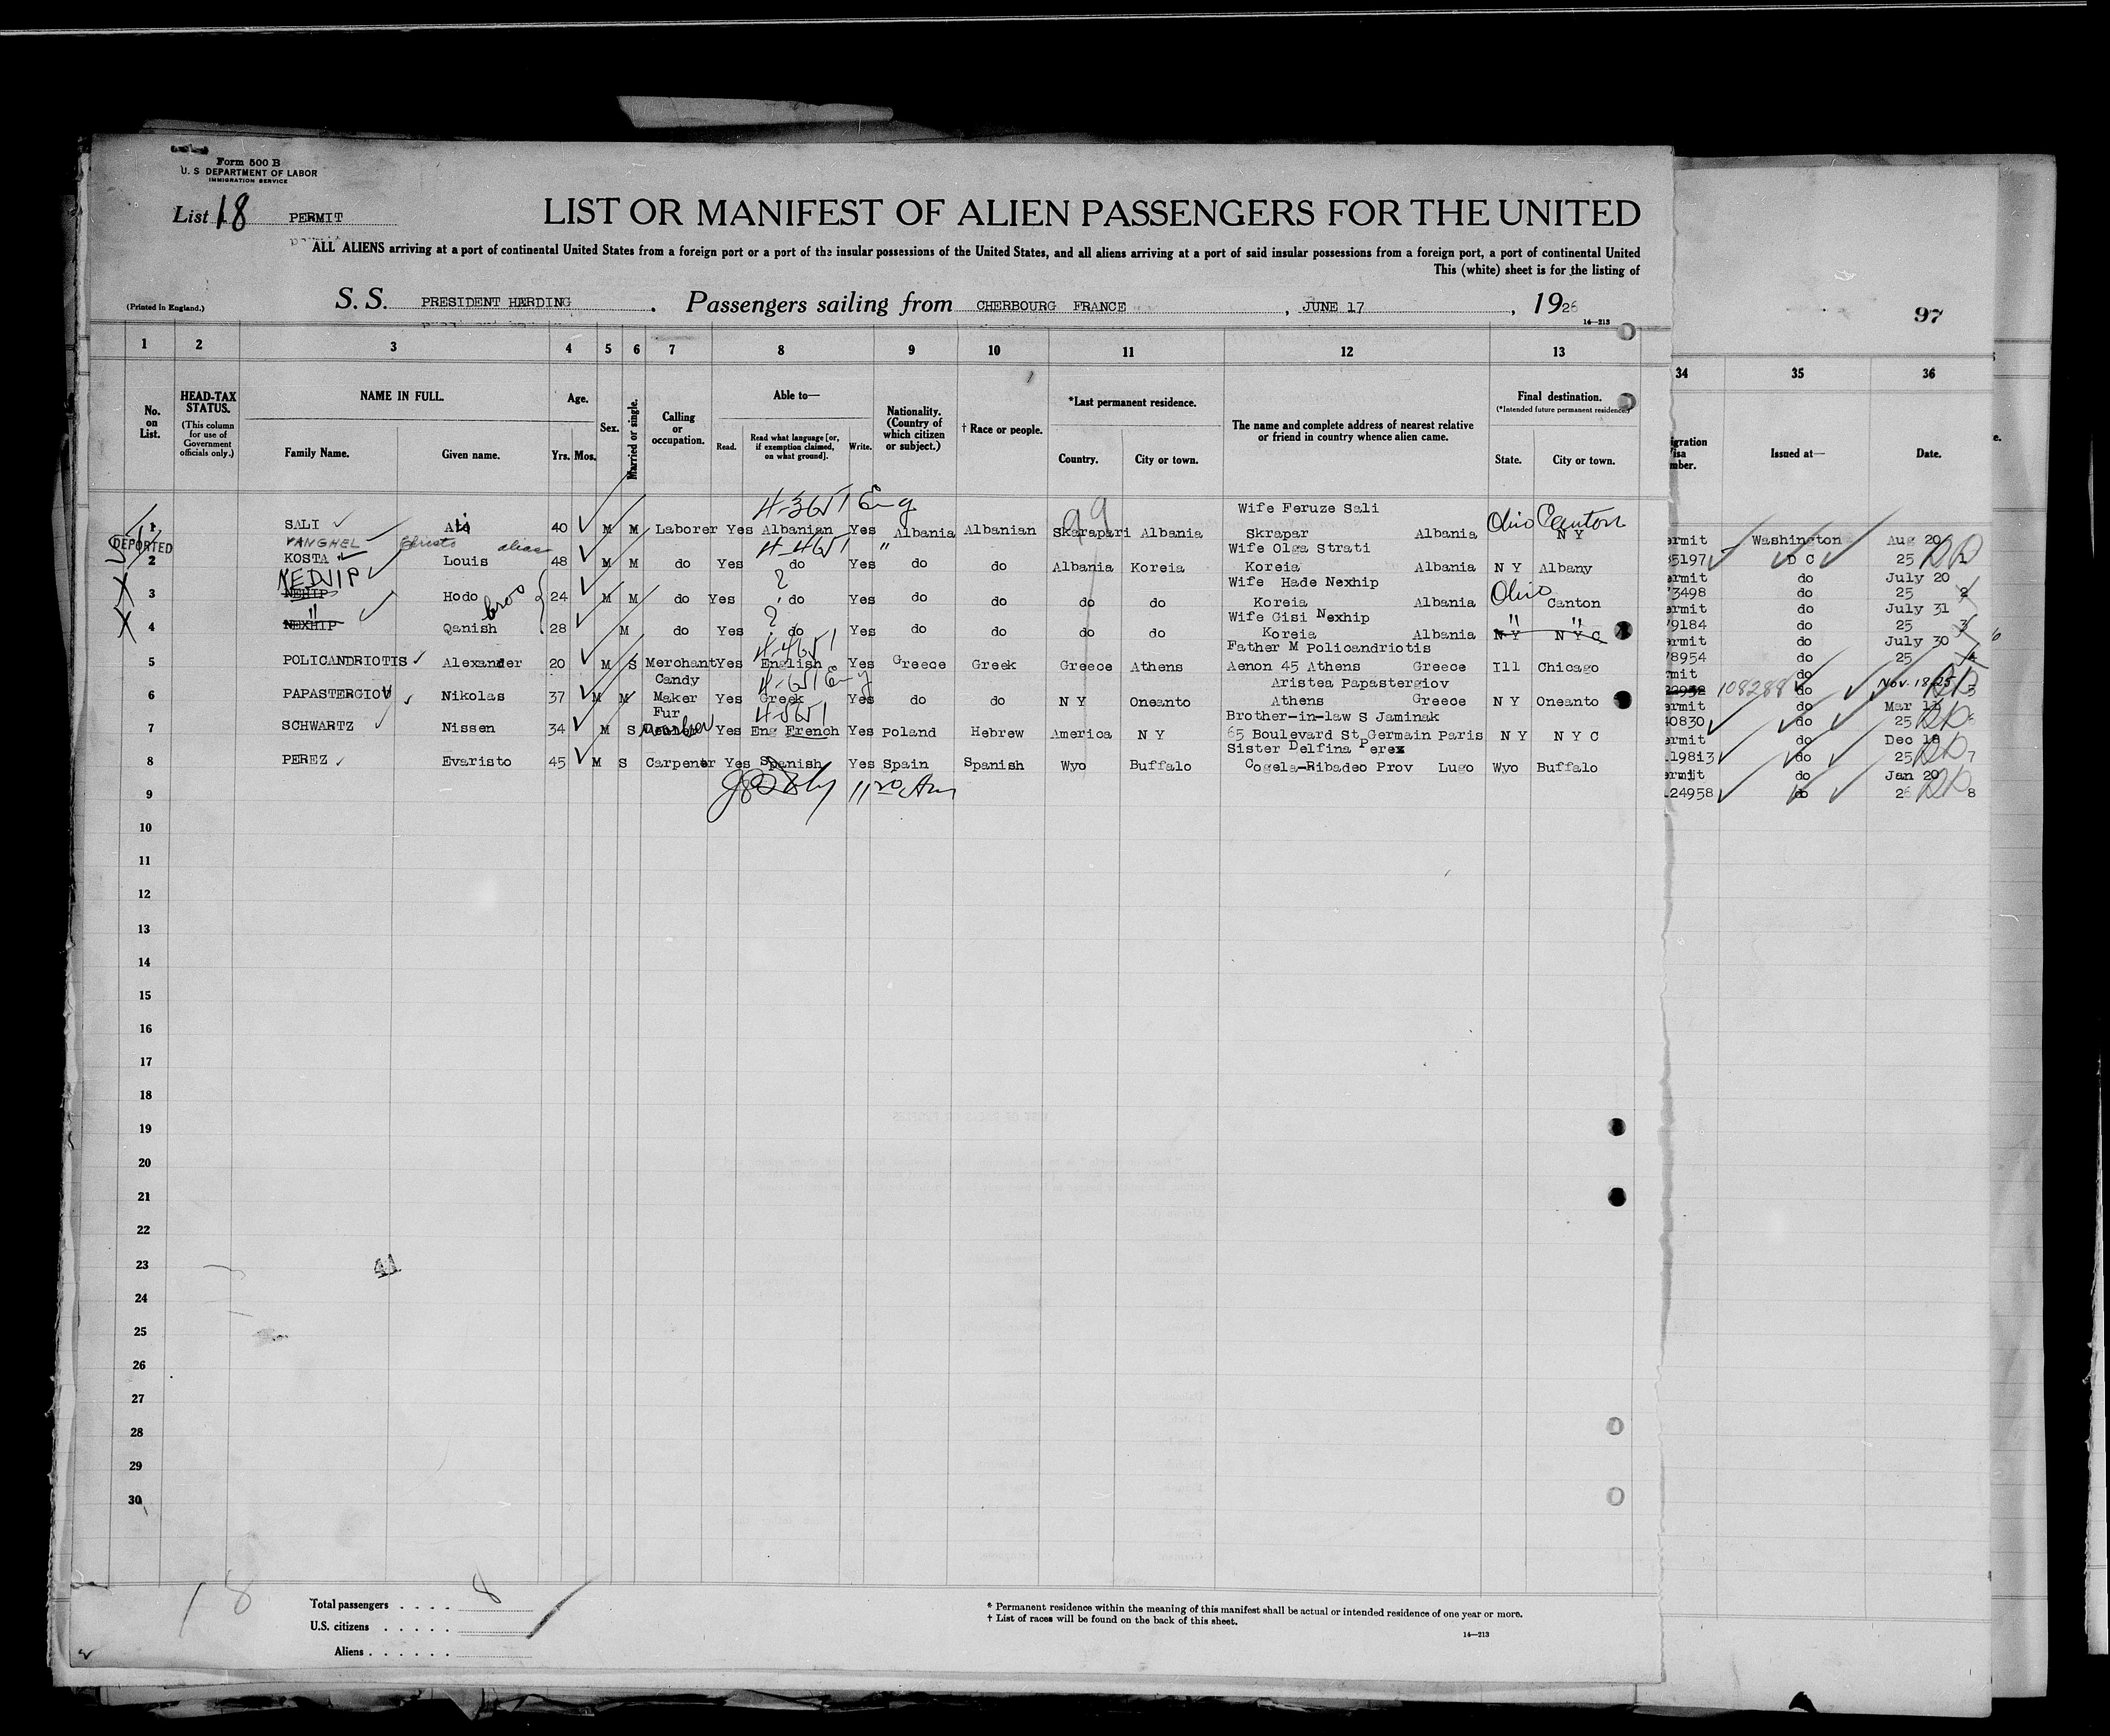 Form 500 B
U. S DEPARTMENT OF LABOR
IMMIGRATION SERVICE
List 18 PERMIT
LIST OR MANIFEST OF ALIEN PASSENGERS FOR THE UNITED
ALL ALIENS arriving at a port of continental United States from a foreign port or a port of the insular possessions of the United States, and all aliens arriving at a port of said insular possessions from a foreign port, a port of continental United
This (white) sheet is for the listing of
(Printed in England.) S. S. PRESIDENT HARDING . Passengers sailing from CHERBOURG FRANCE , JUNE 17 , 1926
14—213
97
1 2 3 4 5 6 7 8 9 10 11 12 13 34 35 36
No. on List.
HEAD-TAX STATUS.
(This column for use of Government officials only.)
NAME IN FULL.
Family Name. Given name.
Age.
Yrs. Mos.
Sex.
Married or single.
Calling or occupation.
Able to—
Read. Read what language [or, if exemption claimed, on what ground]. Write.
Nationality. (Country of which citizen or subject.)
† Race or people.
*Last permanent residence.
Country. City or town.
The name and complete address of nearest relative or friend in country whence alien came.
Final destination.
(*Intended future permanent residence.)
State. City or town.
Issued at— Date.
4-3651 Eng
Wife Feruze Sali
1 SALI 40 M M Laborer Yes Albanian Yes Albania Albanian Skarapari Albania Skrapar Albania Ohio Canton N Y
ermit Washington Aug 20
DEPORTED VANGHEL Christo alias 4-4651 " Wife Olga Strati
2 KOSTA Louis 48 M M do Yes do Yes do do Albania Koreia Koreia Albania N Y Albany
35197 D C 25
NEDJIP ? Wife Hade Nexhip Ohio
ermit do July 20
3 NEHIP Hodo bros 24 M M do Yes do Yes do do do do Koreia Albania Canton
3498 do 25 2
" ? Wife Gisi Nexhip " "
ermit do July 31
4 NEXHIP Qanish 28 M do Yes do Yes do do do do Koreia Albania N Y N Y C
9184 do 25 3
4-4651 Father M Policandriotis
ermit do July 30
5 POLICANDRIOTIS Alexander 20 M S Merchant Yes English Yes Greece Greek Greece Athens Aenon 45 Athens Greece Ill Chicago
8954 do 25 4
Candy 4-651 Eng Aristea Papastergiov
rmit do
6 PAPASTERGIOV Nikolas 37 M M Maker Yes Greek Yes do do N Y Oneanto Athens Greece N Y Oneanto
22932 108288 do Nov. 18-25 5
Fur 4-5651 Brother-in-law S Jaminak
ermit do Mar 11
7 SCHWARTZ Nissen 34 M S Yes Eng French Yes Poland Hebrew America N Y 65 Boulevard St Germain Paris N Y N Y C
40830 do 25 6
Sister Delfina Perez
ermit do Dec 18
8 PEREZ Evaristo 45 M S Carpenter Yes Spanish Yes Spain Spanish Wyo Buffalo Cogela-Ribadeo Prov Lugo Wyo Buffalo
19813 do 25 7
ermit do Jan 20
9
24958 do 26 8
10
11
12
13
14
15
16
17
18
19
20
21
22
23
24
25
26
27
28
29
30
18
Total passengers . . . . 8
U.S. citizens . . . . .
Aliens . . . . . .
* Permanent residence within the meaning of this manifest shall be actual or intended residence of one year or more.
† List of races will be found on the back of this sheet.
14—213